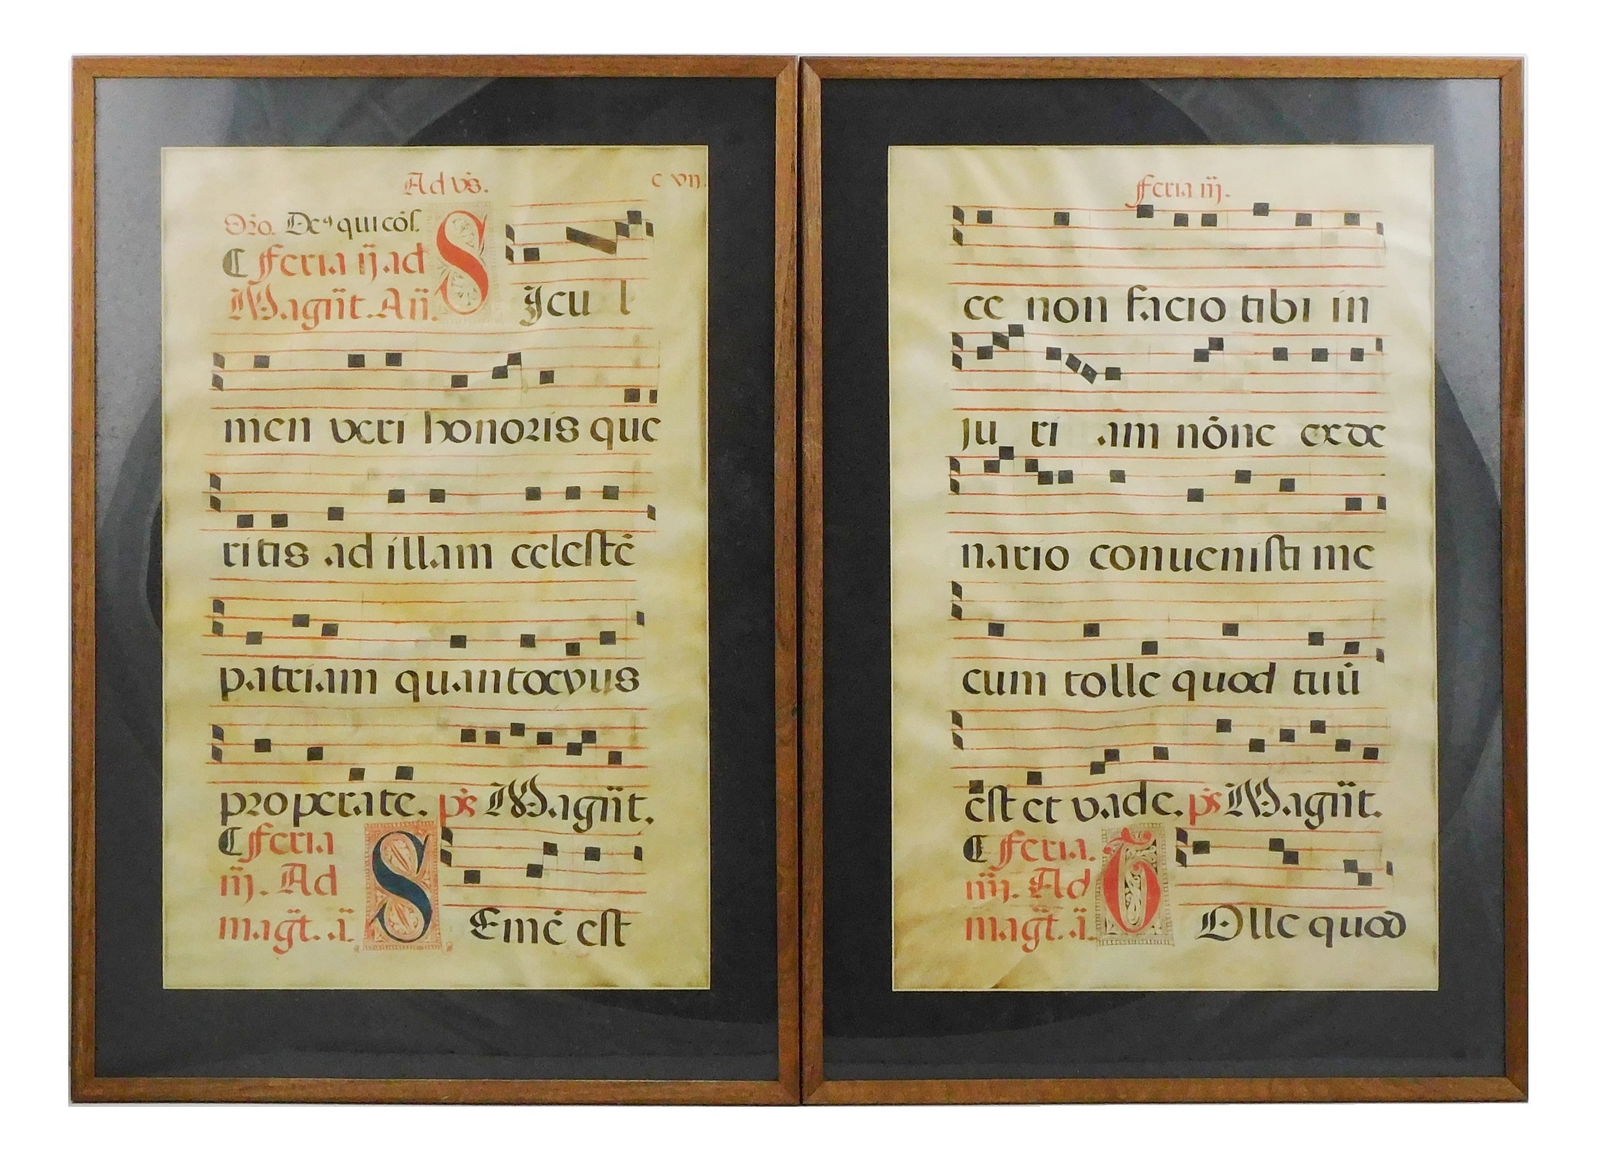 Ad vs̃.
c vıȷ.
Oro. De⁹ qui cōſ.
¶ feria ij. ad
Magn̄t. An̄. S Jcu l
men veri honoris que
ritis ad illam celeſtē
patriam quantocyus
properate. p̄s Magn̄t.
¶ feria
iij. Ad
mag̃t. ā. S Emē eſt
feria iij.
ce non facio tibi in
ju ri am nōne ex de
nario conueniſti me
cum tolle quod tuū
eſt et vade. p̄s Magn̄t.
¶ feria.
iiij. Ad
mag̃t. ā. T Olle quod